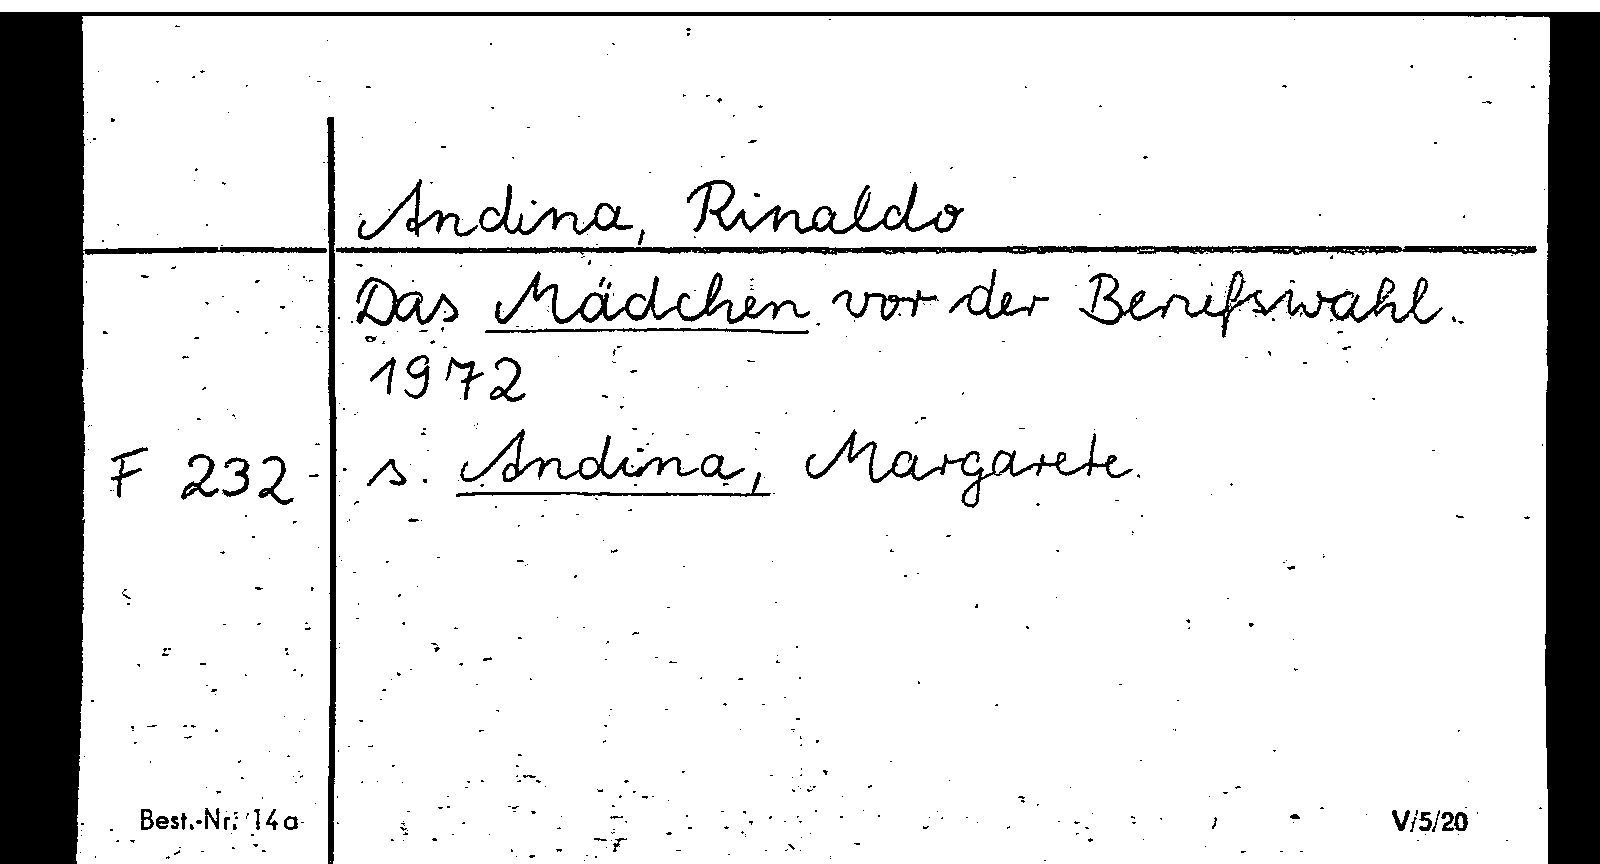 Andina, Rinaldo
Das Mädchen vor der Berufswahl.
1972
F 232 s. Andina, Margarete.
Best.-Nr. 14a V/5/20